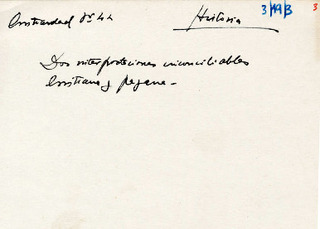 Cristiandad nº 44
Historia
3/19/3
3
Dos interpretaciones inconciliables
cristiana y pagana.-